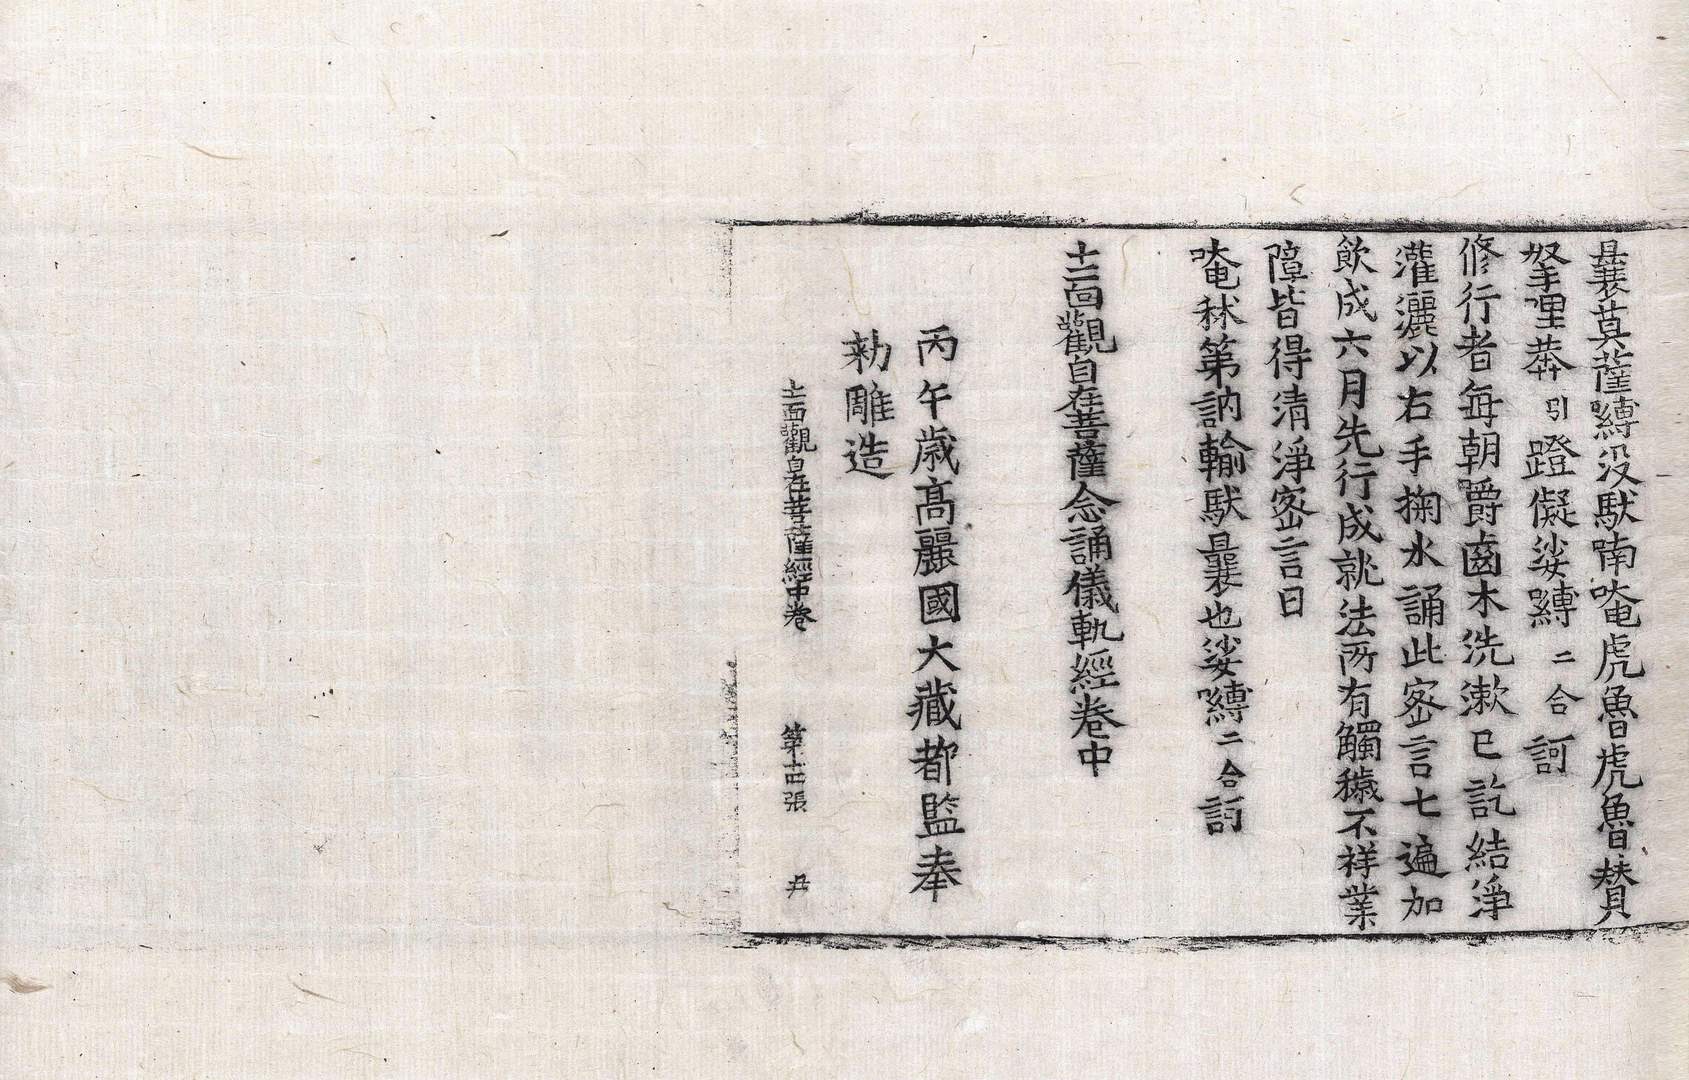 曩莫薩嚩没馱喃唵虎魯虎魯賛
拏哩莽引蹬儗娑嚩二合訶
修行者每朝嚼齒木洗漱已訖結淨
灌灑以右手掬水誦此密言七遍加
飲成六月先行成就法所有觸穢不祥業
障皆得清淨密言曰
唵秫第訥輸馱曩也娑嚩二合訶
十一面觀自在菩薩念誦儀軌經卷中
丙午歲高麗國大藏都監奉
勅雕造
十一面觀自在菩薩經中卷 第十四張 丹